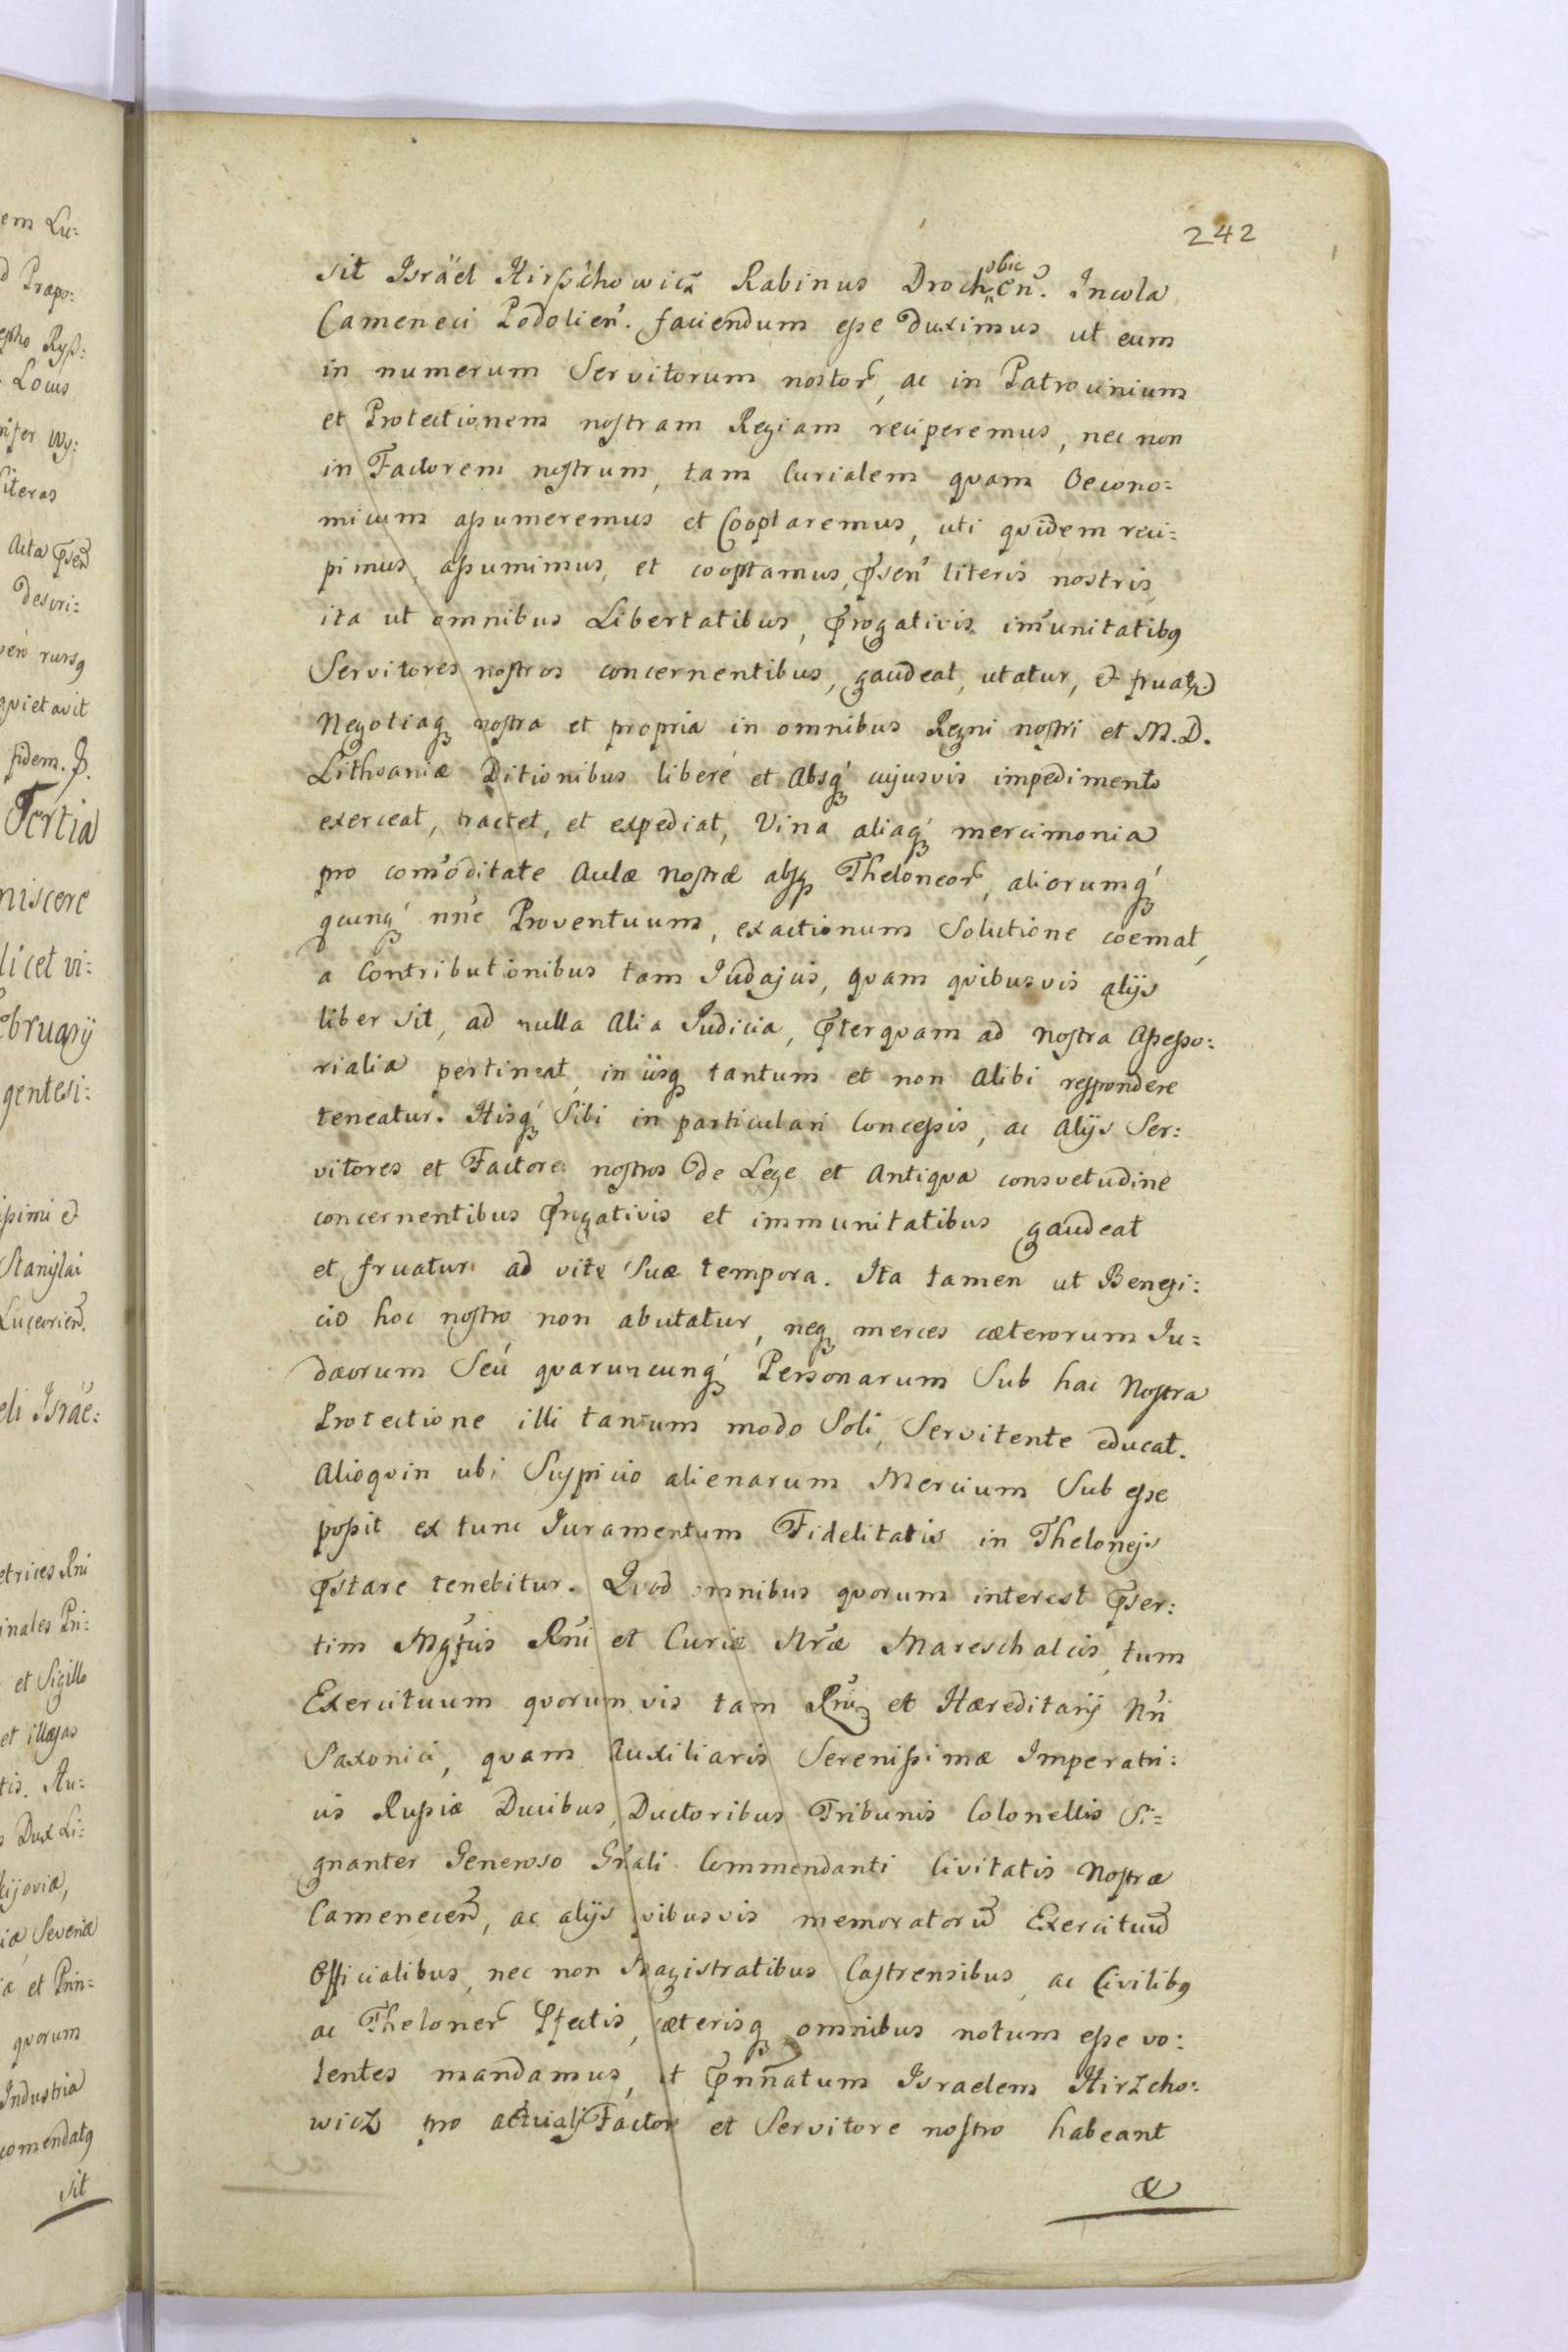 242
sit Israël Hirszchowicz Rabinus Drochobicen̄. Incola
Cameneci Podolien̄. faciendum esse duximus ut eum
in numerum Servitorum nostor̄, ac in Patrocinium
et Protectionem nostram Regiam reciperemus, nec non
in Factorem nostrum, tam Curialem quam Oecono:
micum assumeremus et Cooptaremus, uti quidem reci:
pimus, assumimus, et cooptamus, p̄sen̄ literis nostris,
ita ut omnibus Libertatibus, p̄rogativis im̄unitatibꝯ
Servitores nostros concernentibus, gaudeat, utatur, et fruatr̄
Negotiaqꝫ nostra et propria in omnibus Regni nostri et M. D.
Lithvaniæ Ditionibus liberé et Absqꝫ cujusvis impedimento
exerceat, tractet, et expediat, Vina aliaqꝫ mercimonia
pro com̄oditate Aulæ nostræ absqꝫ Theloneor̄, aliorumqꝫ
qcunqꝫ nn̄e Proventuum, exactionum Solutione coemat,
a Contributionibus tam Judajcis, quam quibusvis alijs
liber sit, ad nulla Alia Judicia, p̄terquam ad nostra Assesso:
rialia pertineat, in iisqꝫ tantum et non Alibi respondere
teneatur. Hisqꝫ Sibi in particulari Concessis, ac Alijs Ser:
vitores et Factores nostros de Lege et Antiqva consvetudine
concernentibus p̄rogativis et immunitatibus gaudeat
et fruatur ad vitæ Suæ tempora. Ita tamen ut Benefi:
cio hoc nostro non abutatur, neqꝫ merces cæterorum Ju=
dæorum Seú quaruncunqꝫ Personarum Sub hac Nostra
Protectione illi tantum modo Soli, Servitente educat.
Alioquin ubi Suspicio alienarum Mercium Sub esse
possit ex tunc Juramentum Fidelitatis in Thelonejs
p̄stare tenebitur. Quod omnibus quorum interest p̄ser:
tim Mgf̄cis Rn̄i et Curiæ Nr̄æ Mareschalcis, tum
Exercituum quorumvis tam Rn̄i qꝫ et Hæreditarij Nr̄i
Saxonici, quam Auxiliaris Serenissimæ Imperatri:
cis Russiæ Ducibus, Ductoribus Tribunis Colonellis Si=
gnanter Generoso Gn̄ali Commendanti Civitatis Nostræ
Camenecen̄, ac alijs qvibusvis memoratorū Exercituū
Officialibus, nec non Magistratibus Castrensibus, ac Civilibꝯ
ac Theloner̄ P̄fectis, cæterisqꝫ omnibus notum esse vo:
lentes mandamus, ut p̄nn̄atum Israelem Hirzcho:
wicz pro actuali Factore et Servitore nostro habeant
&